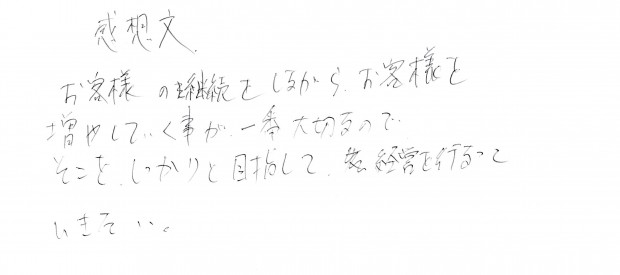 感想文
お客様の継続をしながら、お客様を
増やしていく事が一番大切なので
そこを、しっかりと目指して、経営を行なって
いきたい。